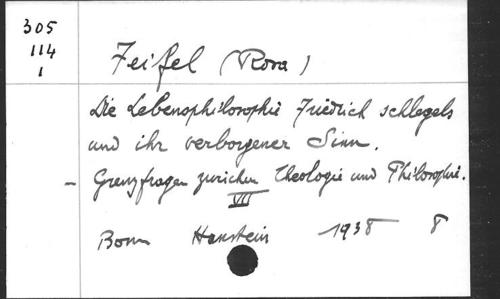 305
114
1
Feifel (Rosa)
Die Lebensphilosophie Friedrich Schlegels
und ihr verborgener Sinn.
– Grenzfragen zwischen Theologie und Philosophie.
VII
Bonn Hanstein 1938 8